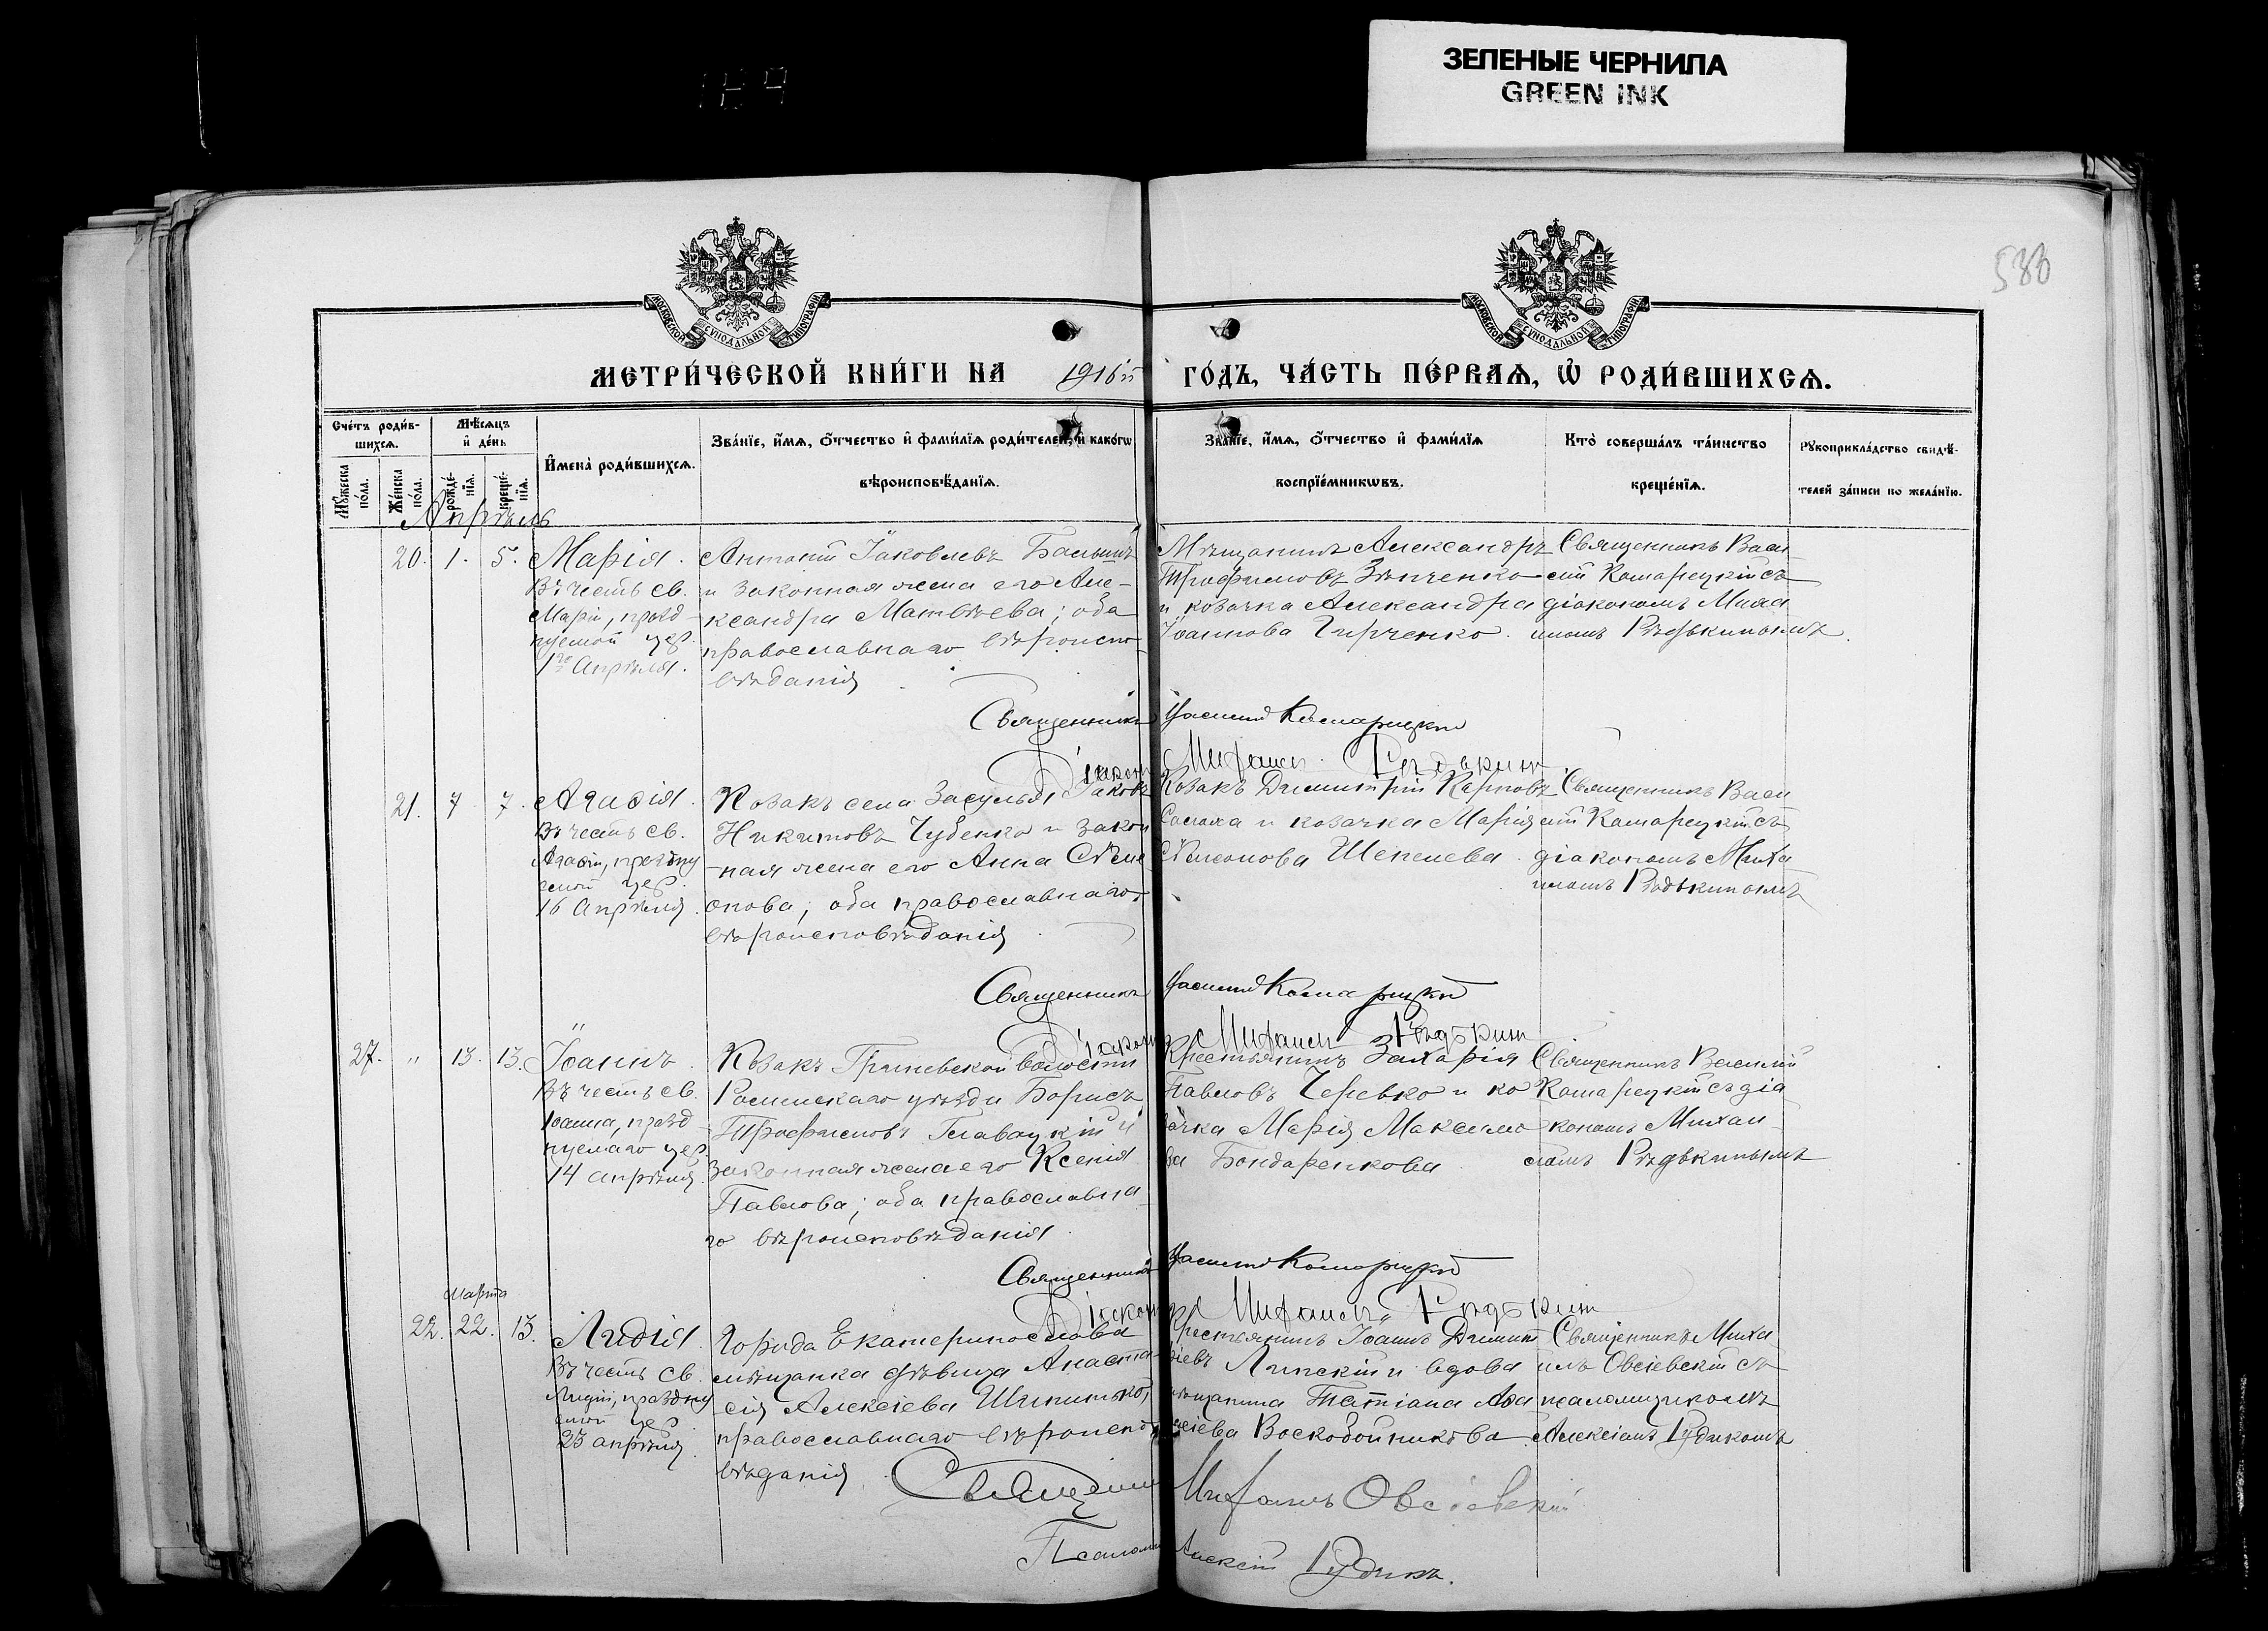 ЗЕЛЕНЫЕ ЧЕРНИЛА
GREEN INK
588
МОСКОВСКОЙ СУНОДАЛЬНОЙ ТИПОГРАФІИ
МОСКОВСКОЙ СУНОДАЛЬНОЙ ТИПОГРАФІИ
МЕТРИ́ЧЕСКОЙ КНИ́ГИ НА 1916й ГО́ДЪ, ЧА́СТЬ ПЕ́РВАѦ, Ѡ РОДИ́ВШИХСѦ.
Счéтъ роди́в-
шихсѧ.
Мꙋ́жеска по́ла.
Же́нска по́ла.
Мѣ́сѧцъ
и҆ де́нь
рожде́-
нїѧ.
креще́-
нїѧ.
И҆мена̀ роди́вшихсѧ.
Зва́нїе, и҆́мѧ, ѻ҆́тчество и҆ фами́лїѧ роди́телей, и҆ како́гѡ
вѣроисповѣ́данїѧ.
Зва́нїе, и҆́мѧ, ѻ҆́тчество и҆ фами́лїѧ
воспрїе́мникѡвъ.
Кто̀ соверша́лъ та́инство
креще́нїѧ.
Рꙋкоприкла́дство свидѣ́-
телей за́писи по жела́нїю.
Апрѣль
20. 1. 5. Марія.
Въ честь св.
Маріи, празд-
нуемой цер.
1го Апрѣля.
Антоній Іаковлевъ
и законная жена его Але-
ксандра Матвѣева; оба
православнаго вѣроиспо-
вѣданія
Мѣщанинъ Александръ
Трофимовъ Зѣнченко
и козачка Александра
Іоаннова Гирченко.
Священникъ Васи-
лій Комарецкій съ
діакономъ Миха
иломъ Рѣдькинымъ.
Священникъ Василій Комарецкій
Діаконъ Михаилъ Рѣдькинъ
21. 7 7. Агафія.
Въ честь св.
Агафіи, праздну
емой цер.
16 Апрѣля.
Козакъ села Засулья Іаковъ
Никитовъ Чубенко и закон
-ная жена его Анна Сѵме
онова; оба православнаго
вѣроисповѣданія.
Козакъ Димитрій Карповъ
Солоха и козачка Марія
Сѵмеонова Шепелева.
Священникъ Васи
лій Комарецкій съ
діакономъ Миха
иломъ Рѣдькинымъ
Священникъ Василій Комарецкій
Діаконъ Михаилъ Рѣдькинъ
27. " 13. 13. Іоаннъ.
Въ честь св.
Іоанна, празд-
нуемаго цер.
14 апрѣля.
Козакъ Гриневской волости
Роменскаго уѣзда Борисъ
Трофимовъ Главацкій и
законная жена его Ксенія
Павлова; оба православна-
го вѣроисповѣданія.
Крестьянинъ Захарія
Павловъ Черевко и ко
зачка Марія Максимо
ва Бондаренкова.
Священникъ Василій
Комарецкій съ діа
кономъ Михаи-
ломъ Рѣдькинымъ
Священникъ Василій Комарецкій
Діаконъ Михаилъ Рѣдькинъ
марта
22. 22. 13. Лидія.
Въ честь св.
Лидіи, праздну
емой цер.
23 апрѣля.
Города Екатеринослава
мѣщанка дѣвица Анаста-
сія Алексіева Шипитько,
православнаго вѣроиспо-
вѣданія.
Крестьянинъ Іоаннъ Димит
ріевъ Липскій и вдова
мѣщанина Татіана
Воскобойникова.
Священникъ Миха
илъ Овсіевскій съ
псаломщикомъ
Алексіемъ Рудикомъ
Священникъ Михаилъ Овсіевскій
Псаломщ Алексій Рудикъ.